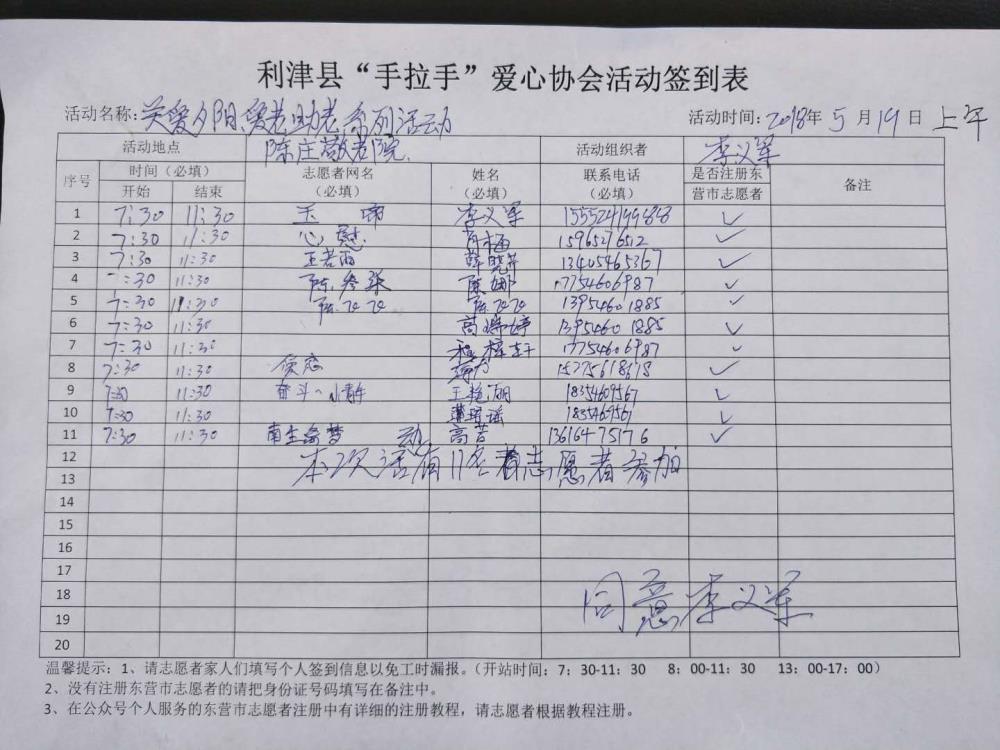 利津县“手拉手”爱心协会活动签到表
活动名称:关爱夕阳 爱老助老系列活动 活动时间:2018年 5 月 19 日 上午
活动地点 陈庄敬老院. 活动组织者 李义军
序号 时间（必填） 志愿者网名（必填） 姓名（必填） 联系电话（必填） 是否注册东营市志愿者 备注
开始 结束
1 7:30 11:30 李义军 ✓
2 7:30 11:30 心慰 15965276512 ✓
3 7:30 11:30 王若雨 13405465367 ✓
4 :30 11:30 陈娜 17754606987 ✓
5 7:30 11:30 陈飞飞 陈飞飞 13954601885 ✓
6 7:30 11:30 13954601885 ✓
7 7:30 11:30 17754606987 ✓
8 7:30 11:30 ✓
9 7:30 11:30 奋斗~小青年 王艳湖 18354609567 ✓
10 7:30 11:30 ✓
11 7:30 11:30 高芳 13616475176 ✓
12 本次活动有11名志愿者参加
13
14
15
16
17
18 同意 李义军
19
20
温馨提示：1、请志愿者家人们填写个人签到信息以免工时漏报。（开站时间：7：30-11：30 8：00-11：30 13：00-17：00）
2、没有注册东营市志愿者的请把身份证号码填写在备注中。
3、在公众号个人服务的东营市志愿者注册中有详细的注册教程，请志愿者根据教程注册。